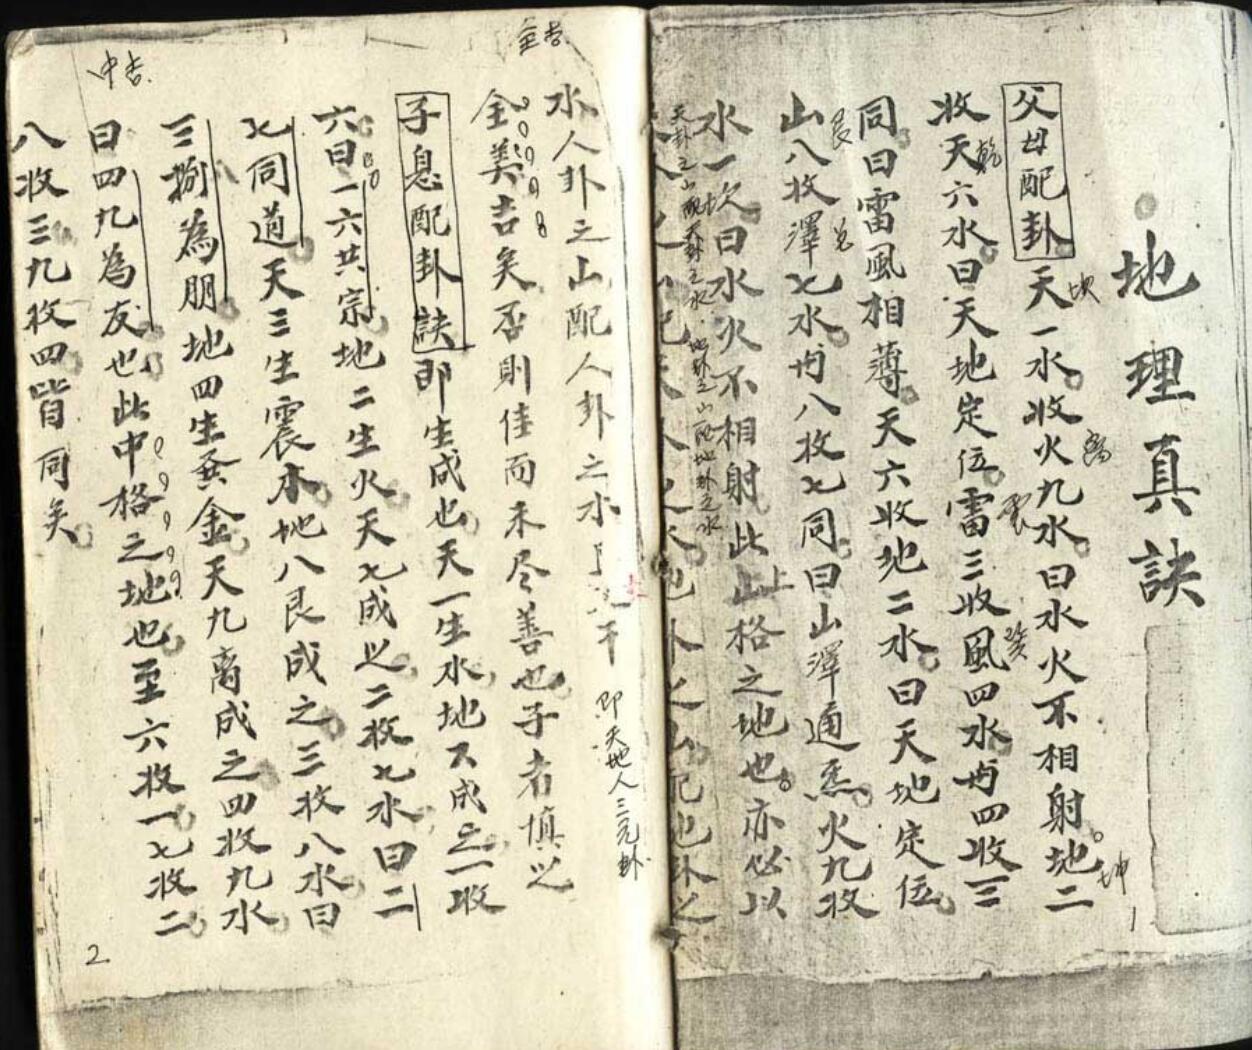 地理真訣
父母配卦天一水收火九水曰水火不相射地二
收天六水曰天地定位雷三收風四水与四收三
同曰雷風相薄天六收地二水曰天地定位
山八收澤七水与八收七同曰山澤通炁火九收
水一次曰水火不相射此上格之地也亦必以
天卦之山配天卦之水地卦之山配地卦之水
水人卦之山配人卦之水
即天地人三元卦
全美吉矣否則佳而未尽善也子者慎之
子息配卦訣即生成也天一生水地六成之一收
六曰一六共宗地二生火天七成之二收七水曰二
七同道天三生震木地八艮成之三收八水曰
三捌為朋地四生巽金天九离成之四收九水
曰四九為友也此中格之地也至六收一七收二
八收三九收四皆同矣
坎
离
坤
乾
震
巽
艮
兑
坎
上
全吉
中吉
1
2